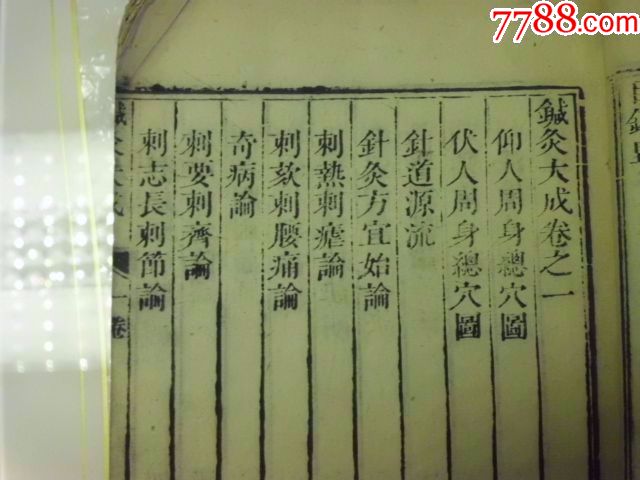 7788.com
鍼灸大成卷之一
仰人周身總穴圖
伏人周身總穴圖
針道源流
針灸方宜始論
刺熱刺瘧論
刺欬刺腰痛論
奇病論
刺要刺齊論
刺志長刺節論
鍼灸大成
一卷